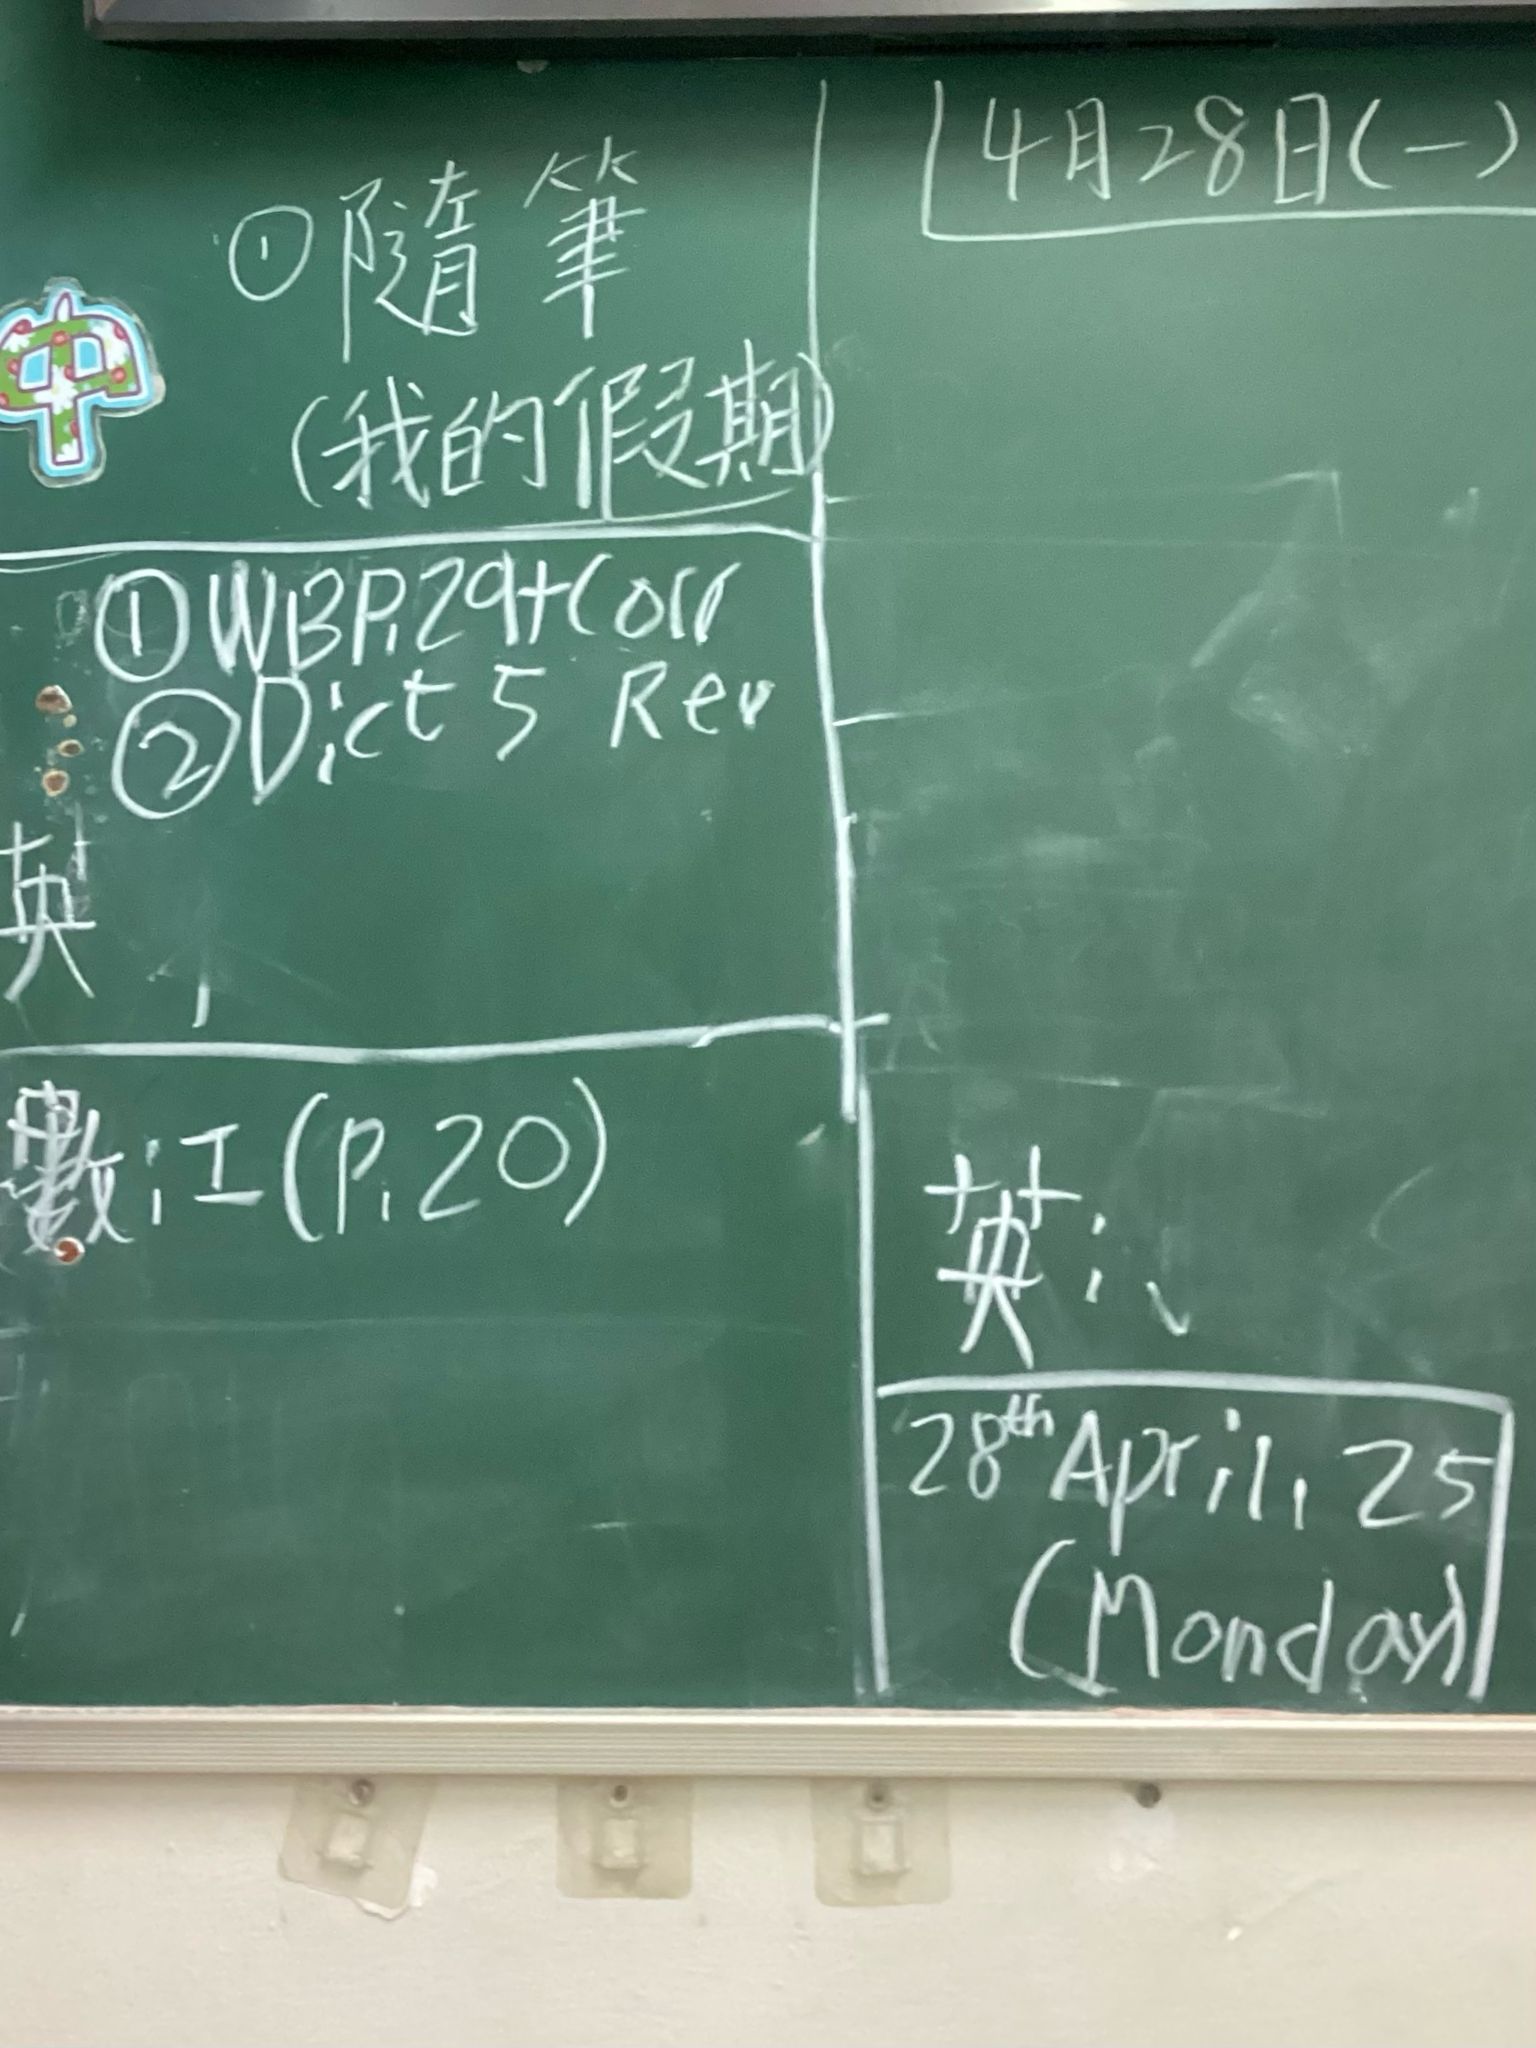 中
①隨筆
(我的假期)
①WBP.29+Corr
②Dict 5 Rev
英
數:工(P.20)
4月28日(一)
英:
28th April, 25
(Monday)